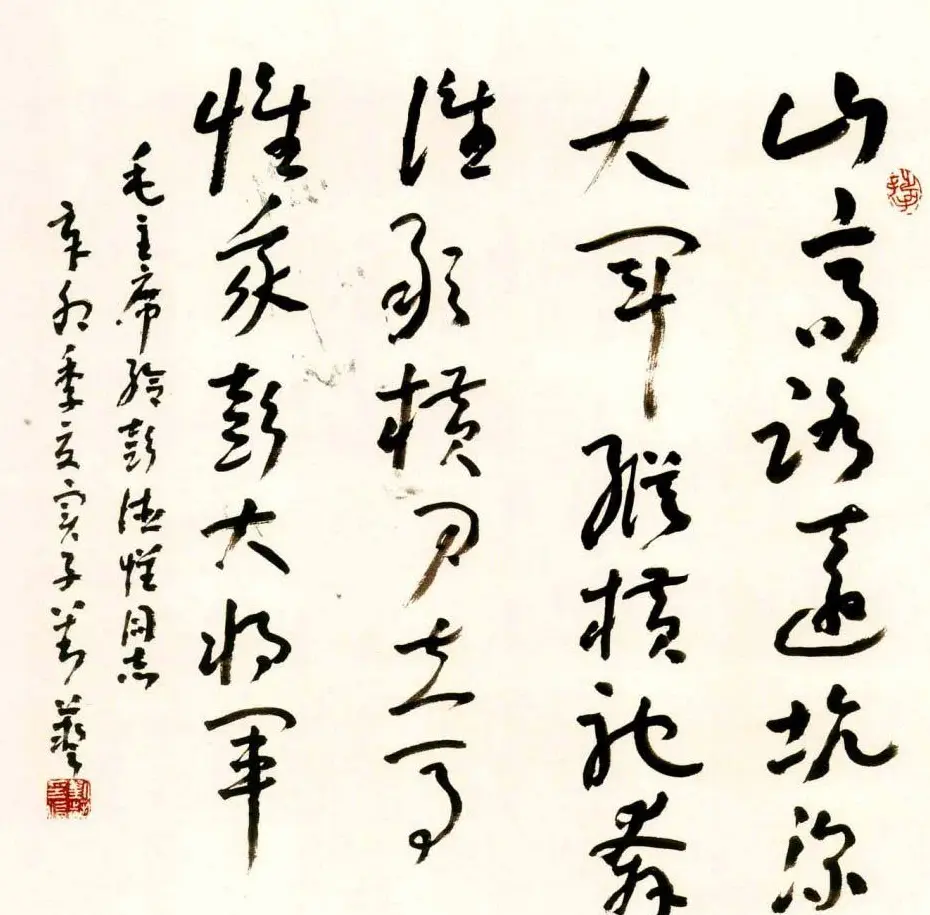 山高路遠坑深
大軍縱横馳奔
誰敢横刀立馬
惟我彭大将軍
毛主席給彭德懷同志
辛卯季夏